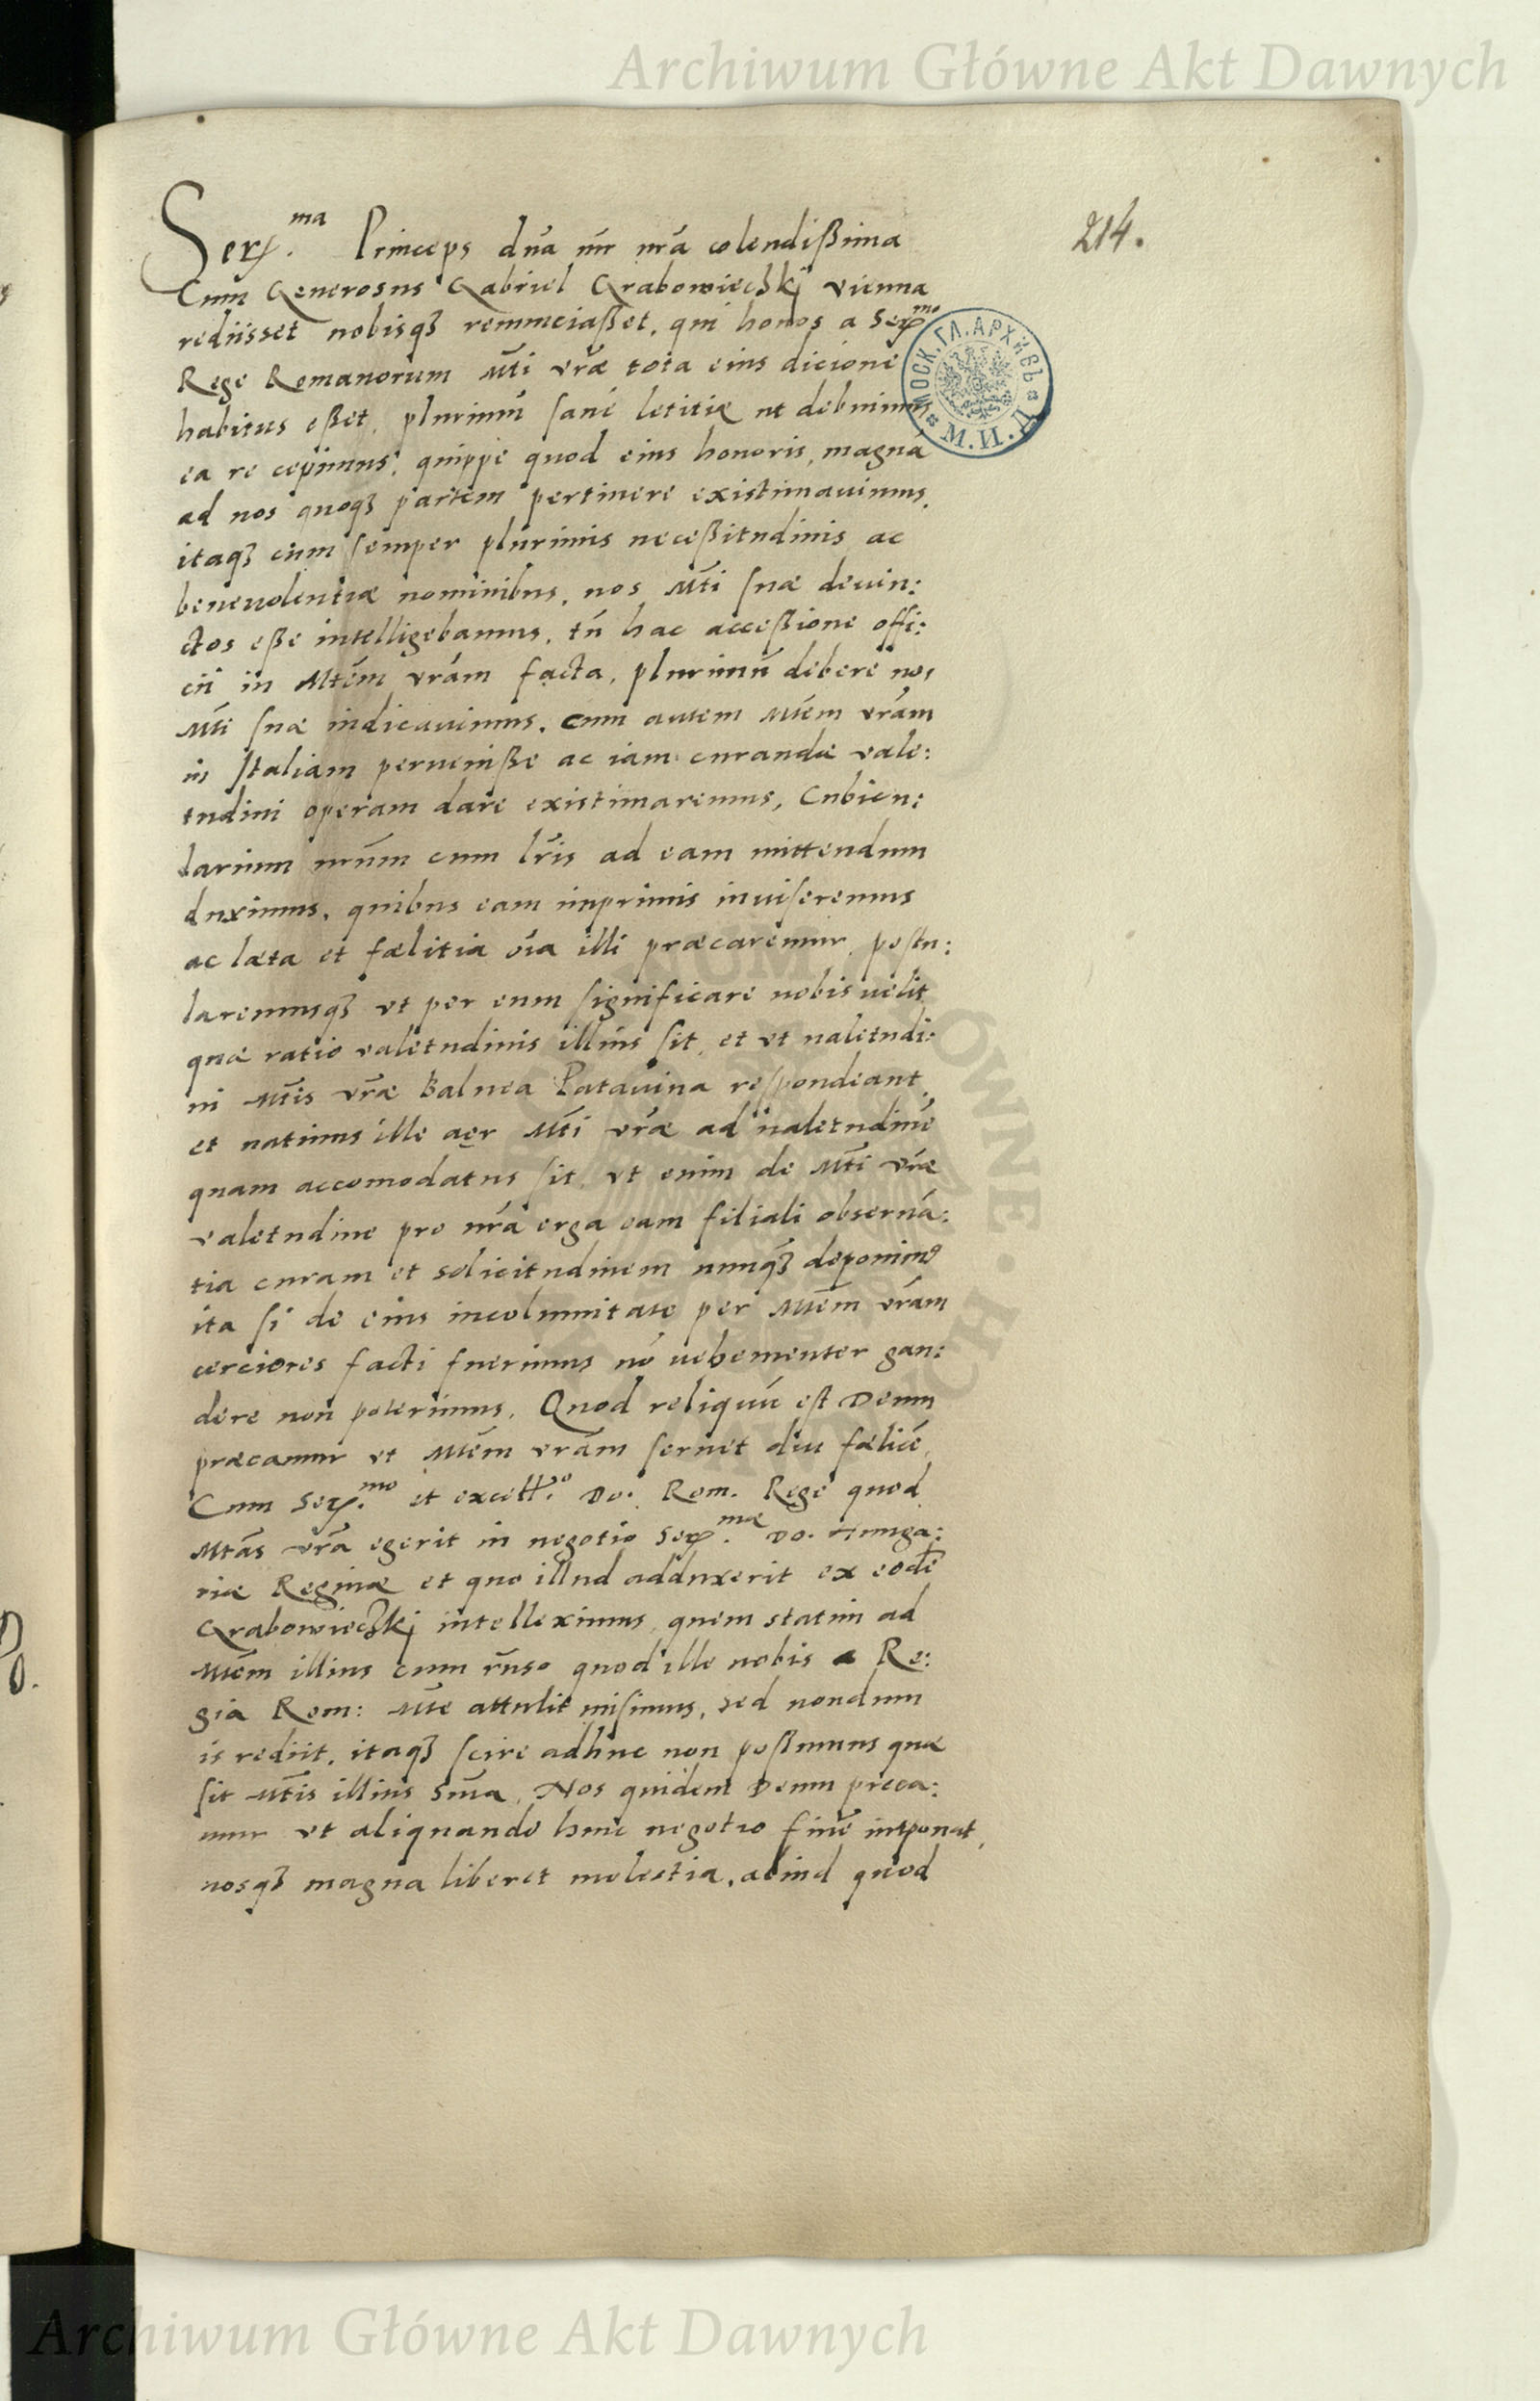 Archiwum Główne Akt Dawnych
214.
Ser.ma Princeps dña mr nrã colendißima
Cum Generosus Gabriel Grabowieczkj vienna
rediisset nobisqȝ renunciaßet, qui honos a Ser.mo
Rege Romanorum Mti vrae tota eius dicione
habitus eßet, plurimũ sane letitiæ ut debuimus
ea re cepimus, quippe quod eius honoris, magnã
ad nos quoqȝ partem pertinere existimauimus,
itaqȝ cum semper plurimis neceßitudinis ac
beneuolentiæ nominibus, nos Mti suae deuin:
ctos eße intelligebamus, tũ hac acceßione offi:
cii in Mtem vram facta, plurimũ debere nos
Mti suae iudicauimus. Cum autem Mtem vram
in Italiam perueniße ac iam curandae vale:
tudini operam dare existimaremus, Cubicu:
larium nrum cum lris ad eam mittendum
duximus, quibus eam imprimis inuiseremus
ac læta et fælitia oĩa illi præcaremur, postu:
laremusqȝ vt per eum significare nobis uelit
quae ratio valetudinis illius sit, et vt ualetudi:
ni Mtis vrae Balnea Patauina respondeant
et natiuus ille aer Mti vrae ad ualetudinẽ
quam accomodatus sit, vt enim de Mti vrae
valetudine pro nra erga eam filiali obseruã:
tia curam et solicitudinem nunqȝ deponimus
ita si de eius incolumitate per Mtem vram
cerciores facti fuerimus nõ uehementer gau:
dere non poterimus. Quod reliquũ est Deum
præcamur vt Mtem vram seruet diu fælicẽ,
Cum Ser.mo et excell.o Do. Rom. Rege quod
Mtas vra egerit in negotio Ser.mae Do. Hunga:
riae Reginae et quo illud adduxerit ex eodẽ
Grabowieczkj intelleximus, quem statim ad
Mtem illius cum rñso quod ille nobis a Re:
gia Rom: Mte attulit misimus, sed nondum
is rediit, itaqȝ scire adhuc non poßumus quae
sit Mtis illius sñia, Nos quidem Deum preca:
mur vt aliquando huic negotio finẽ imponat,
nosqȝ magna liberet molestia, aliud quod
МОСК. ГЛ. АРХИВЪ
М.И.Д.
Archiwum Główne Akt Dawnych